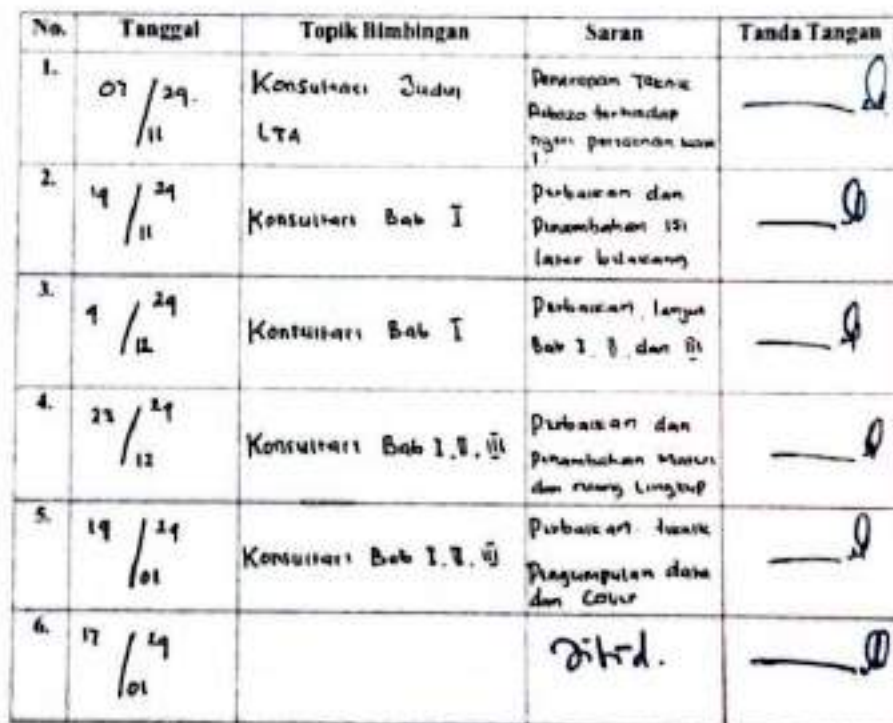 No. Tanggal Topik Bimbingan Saran Tanda Tangan
1. 07/11 Konsultasi Judul Penerapan Teknik
LTA Rebozo terhadap
nyeri persalinan kala
I
2. 19/11 Konsultasi Bab I Perbaikan dan
Penambahan isi
latar belakang
3. 9/12 Konsultasi Bab I Perbaikan, lanjut
Bab I, II, dan III
4. 23/12 Konsultasi Bab I, II, III Perbaikan dan
Penambahan
dan ruang lingkup
5. /01 Konsultasi Bab I, II, III Perbaikan teknik
Pengumpulan data
dan Cover
6. 17/01